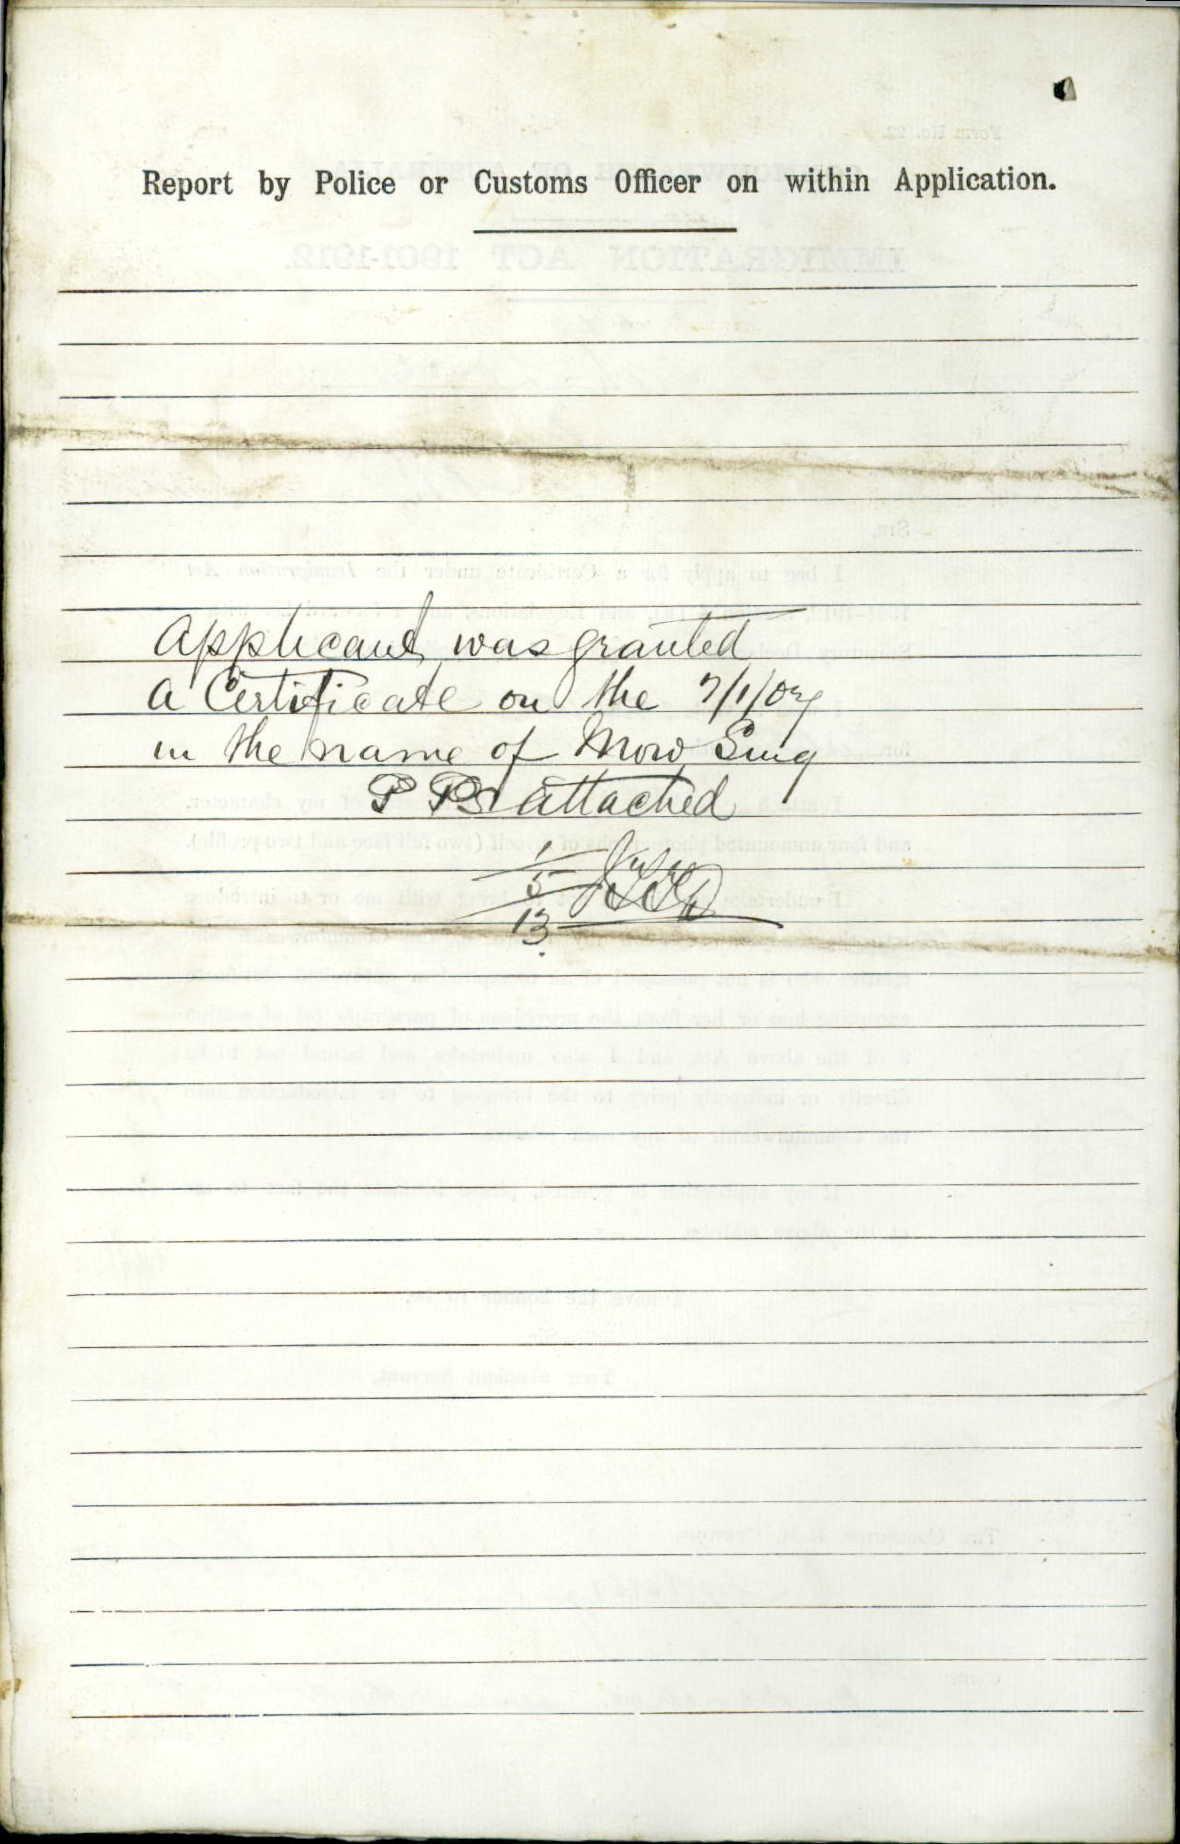 Report by Police or Customs Officer on within Application.
Applicant was granted
a Certificate on the 7/1/09
in the name of Mow Sing
P Ps attached
1
5
13